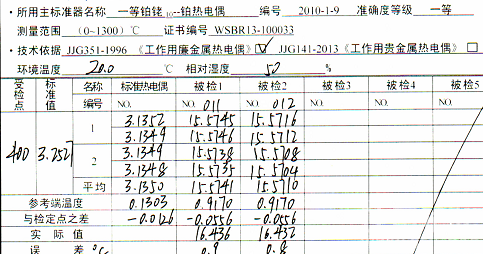 · 所用主标准器名称 一等铂铑10--铂热电偶 编号 2010-1-9 准确度等级 一等
测量范围 (0~1300)℃ 证书编号 WSBR13-100033
· 技术依据 JJG351-1996 《工作用廉金属热电偶》☑ JJG141-2013《工作用贵金属热电偶》□
环境温度 20.0 ℃ 相对湿度 50 %
受检点 标准值 名称 标准热电偶 被检1 被检2 被检3 被检4 被检5
编号 NO. NO. 011 NO. 012 NO. NO. NO.
400 3.2527 1 3.1352 15.5745 15.5716
3.1349 15.5746 15.5712
2 3.1349 15.5738 15.5708
3.1348 15.5735 15.5704
平均 3.1350 15.5741 15.5710
参考端温度 0.1303 0.9170 0.9170
与检定点之差 -0.0126 -0.0556 -0.0556
实际值 16.436 16.432
误差 ℃ 0.9 0.8